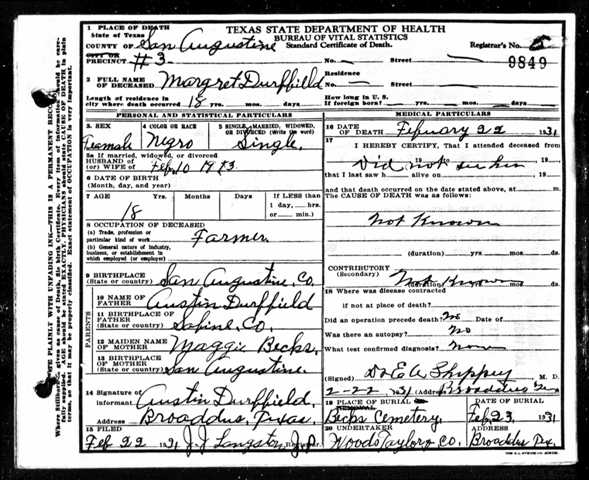 1 PLACE OF DEATH
State of Texas
COUNTY OF San Augustine
CITY OR
PRECINCT #3
TEXAS STATE DEPARTMENT OF HEALTH
BUREAU OF VITAL STATISTICS
Standard Certificate of Death.
Registrar's No. 5
No. Street 9849
2 FULL NAME
OF DECEASED Margret Durffield
Residence
No. Street
Length of residence in
city where death occurred 18 yrs. mos. days.
How long in U. S.
If foreign born? yrs. mos. days.
PERSONAL AND STATISTICAL PARTICULARS
3. SEX Feamale
4 COLOR OR RACE Negro
5 SINGLE, MARRIED, WIDOWED,
OR DIVORCED (Write the word)
Single.
5a If married, widowed, or divorced
HUSBAND OF
(or) WIFE OF Feb. 10
6 DATE OF BIRTH
(Month, day, and year)
7 AGE Yrs. Months Days If LESS than
1 day,....hrs.
or.... min.)
18
8 OCCUPATION OF DECEASED
(a) Trade, profession or
particular kind of work Farmer
(b) General nature of industry,
business, or establishment in
which employed (or employer)
9 BIRTHPLACE
(State or country) San Augustine, Co.
PARENTS
10 NAME OF
FATHER Austin Durffield
11 BIRTHPLACE OF FATHER
(State or country) Sabine, Co.
12 MAIDEN NAME
OF MOTHER Maggie Becks.
13 BIRTHPLACE OF MOTHER
(State or country) San Augustine.
14 Signature of
informant Austin Durffield,
Address Broaddus, Texas.
15 FILED
Feb 22 1931 J.J. Langston, J.P.
MEDICAL PARTICULARS
16 DATE
OF DEATH Febuary 22 1931
17 I HEREBY CERTIFY, That I attended deceased from
Did not see him 19
that I last saw h alive on 19
and that death occurred on the date stated above, at m.
The CAUSE OF DEATH was as follows:
Not Known
(duration) yrs. mos. ds.
CONTRIBUTORY
(Secondary) Not Known
(duration) yrs. mos. ds.
18 Where was disease contracted
if not at place of death?
Did an operation precede death? No Date of
Was there an autopsy? No
What test confirmed diagnosis?
(Signed) Dr E A M. D.
2-22 1931 (Address) Broaddus
19 PLACE OF BURIAL DATE OF BURIAL
Becks Cemetery. Feb 23, 1931
20 UNDERTAKER ADDRESS
Woods Taylor Co. Broaddus Tx.